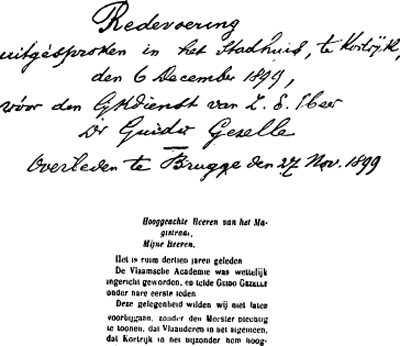 Redevoering
uitgesproken in het Stadhuis, te Kortrijk,
den 6 December 1899,
vóór den Lijkdienst van Z. E. Heer
Dr Guido Gezelle
Overleden te Brugge den 27 Nov. 1899
Hooggeachte Heeren van het Ma-
gistraat,
Mijne Heeren.
Het is ruim dertien jaren geleden
De Vlaamsche Academie was wettelijk
ingericht geworden, en telde GUIDO GEZELLE
onder hare eerste leden
Deze gelegenheid wilden wij niet laten
voorbijgaan, zonder den Meester plechtig
te toonen, dat Vlaanderen in het algemeen,
dat Kortrijk in het bijzonder hem hoog-